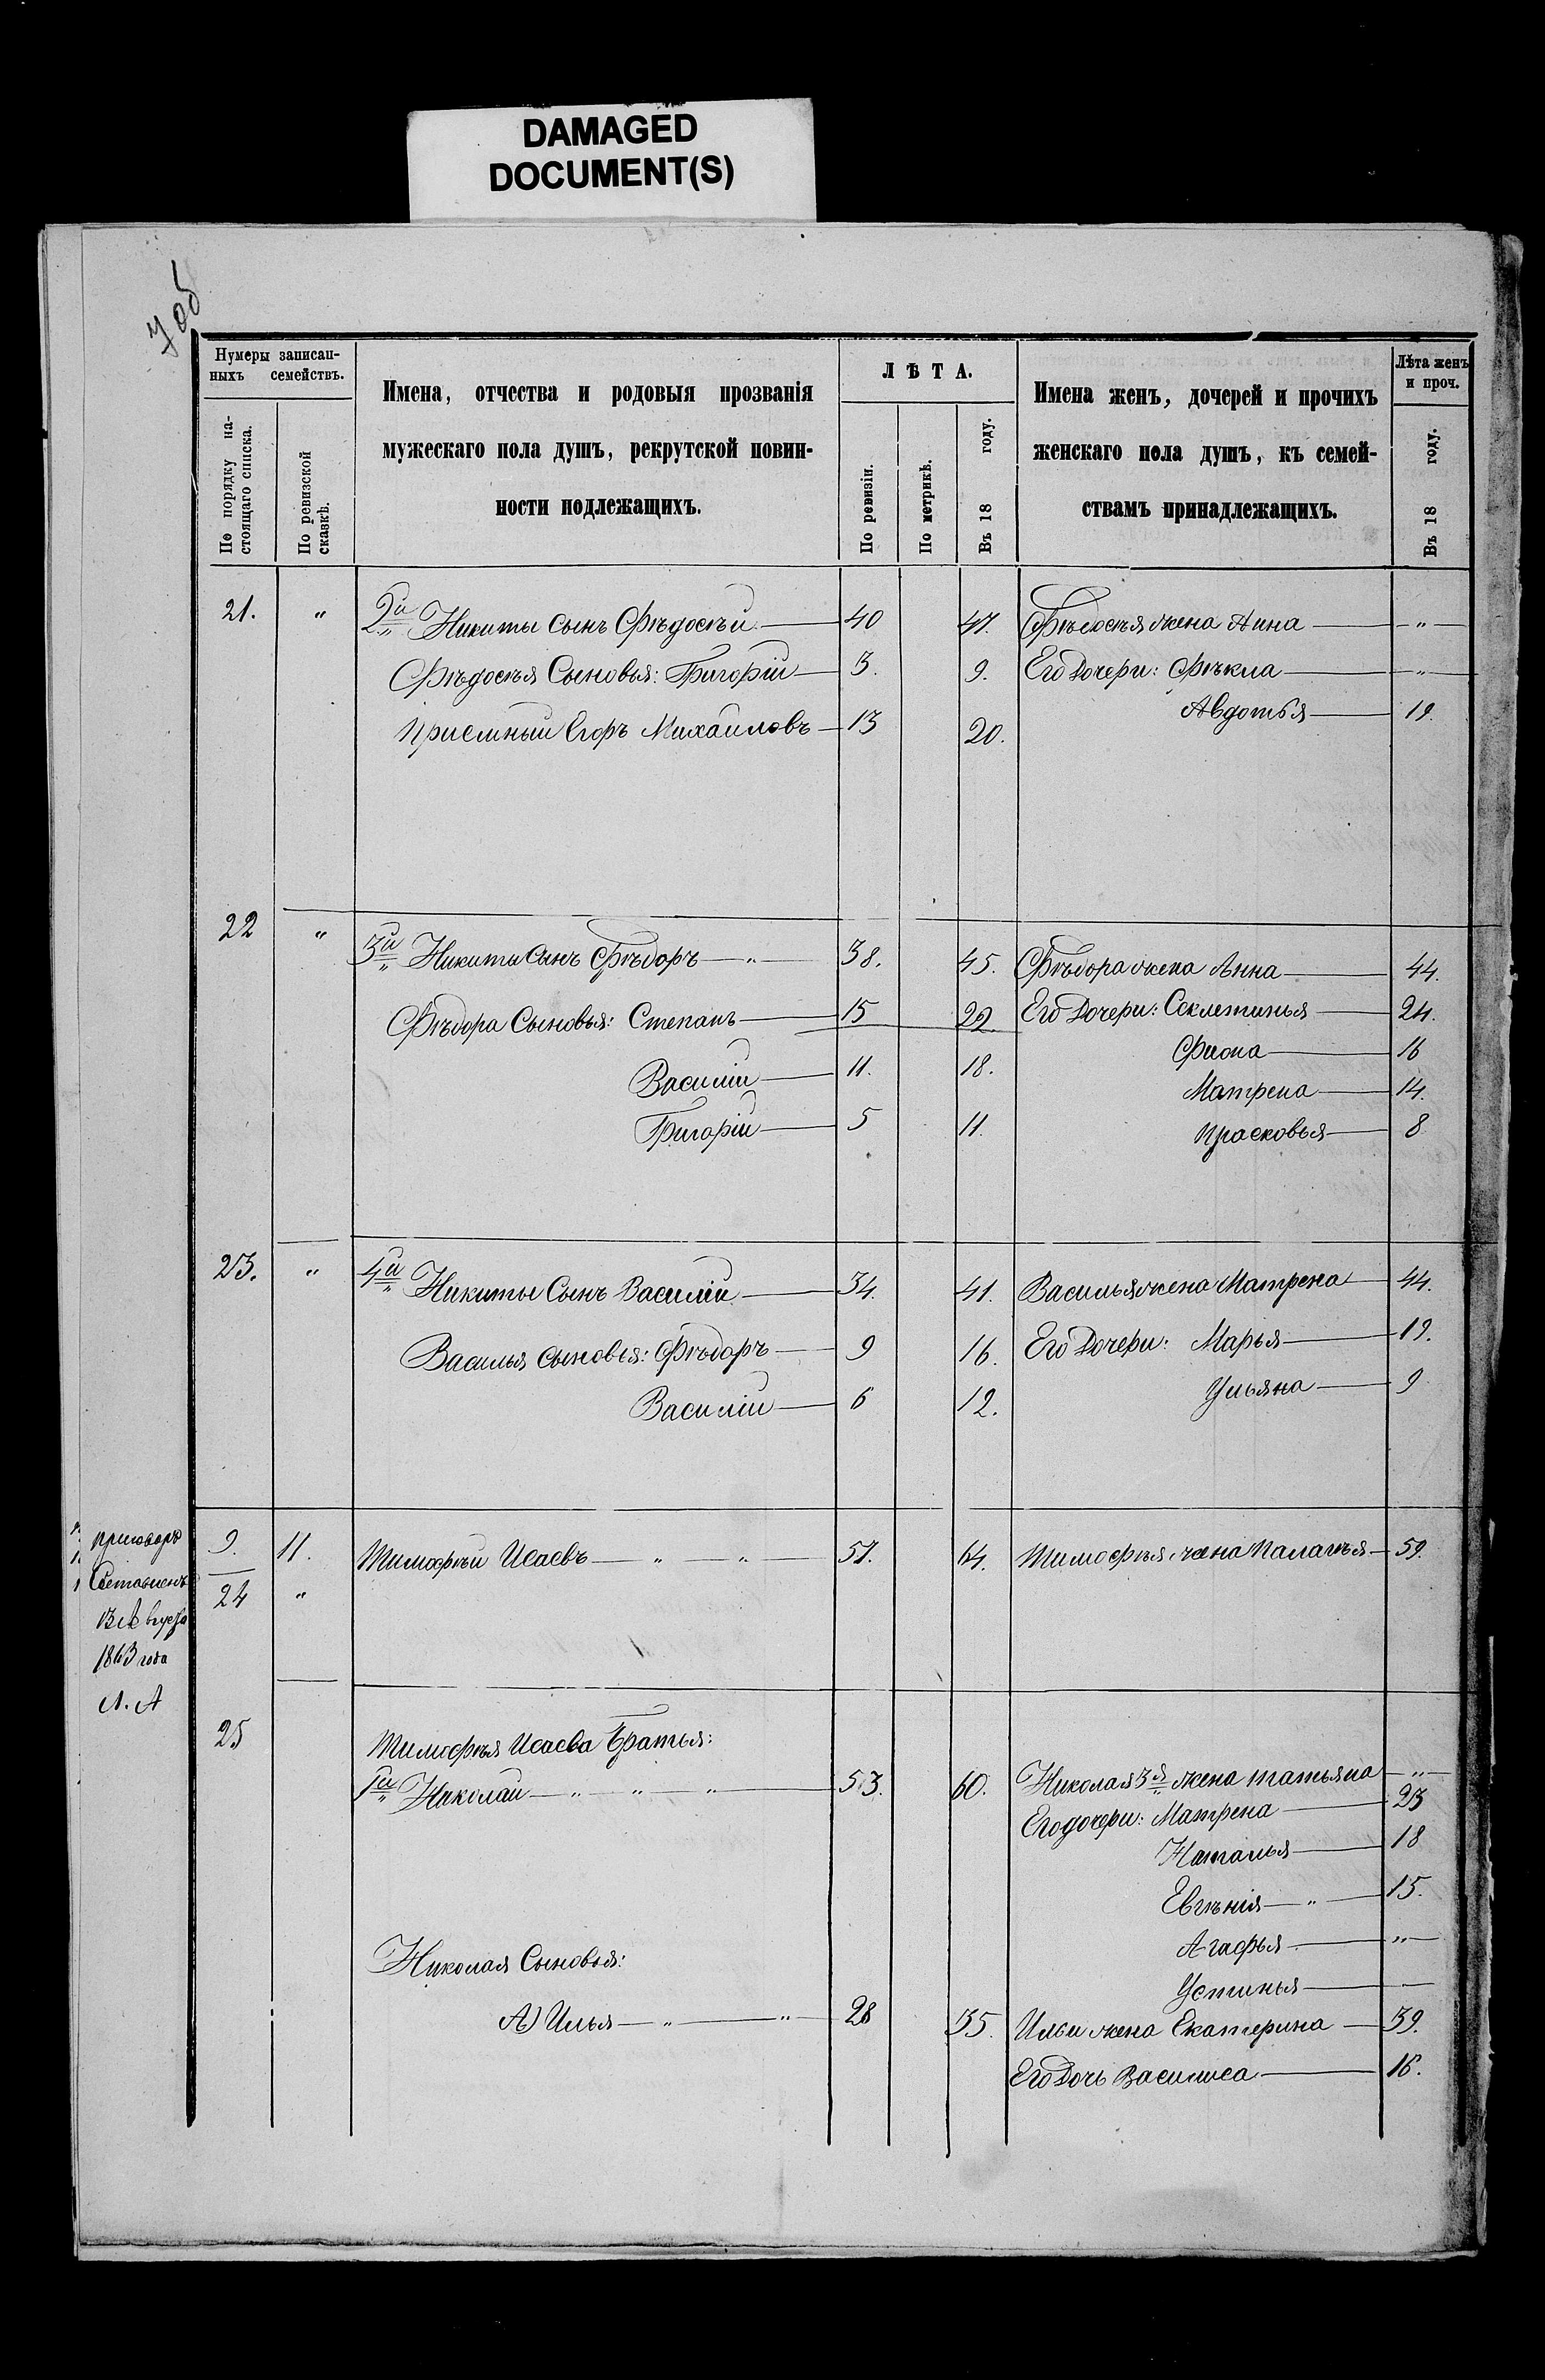 DAMAGED
DOCUMENT(S)
7об
Нумеры записан-
ныхъ семействъ.
По порядку на-
стоящаго списка.
По ревизской
сказкѣ.
Имена, отчества и родовыя прозванія
мужескаго пола душъ, рекрутской повин-
ности подлежащихъ.
ЛѢТА.
По ревизіи.
По метрикѣ.
Въ 18 году.
Имена женъ, дочерей и прочихъ
женскаго пола душъ, къ семей-
ствамъ принадлежащихъ.
Лѣта женъ
и проч.
Въ 18 году.
21. " 2й Никиты сынъ Фѣдосѣй 40 47. Фѣдосѣя жена Анна "
Фѣдосѣя Сыновья: Григорій 3. 9. Его Дочери: Фѣкла "
Приемный Егоръ Михайловъ 13 20. Авдотья 19.
22 " 3й Никиты Сынъ Фѣдоръ " 38. 45. Фѣдора жена Анна 44.
Фѣдора Сыновья: Степанъ 15 22. Его Дочери: Секлетинья 24.
Василій 11. 18. Фиона 16
Матрена 14.
Григорій 5 11. Прасковья 8
23. " 4й Никиты Сынъ Василій 34. 41. Василья жена Матрена 44.
Василья сыновья: Фѣдоръ 9 16. Его Дочери: Марья 19.
Василій 6 12. Ульяна 9
Приговоръ
Составленъ
13 Августа
1863 года
Л. А
9. 11. Тимофѣй Исаевъ " " 57. 64. Тимофѣя жена Палагѣя 59.
24 "
25 Тимофѣя Исаева Братья:
1й Николай " " " 53. 60. Николая 3я жена татьяна "
Его дочери: Матрена 23
Наталья 18
Евгѣнія " 15.
Агафья "
Николая Сыновья:
Устинья
А) Илья " " 28 35. Ильи жена Екатерина 39.
Его Дочь Василиса 16.